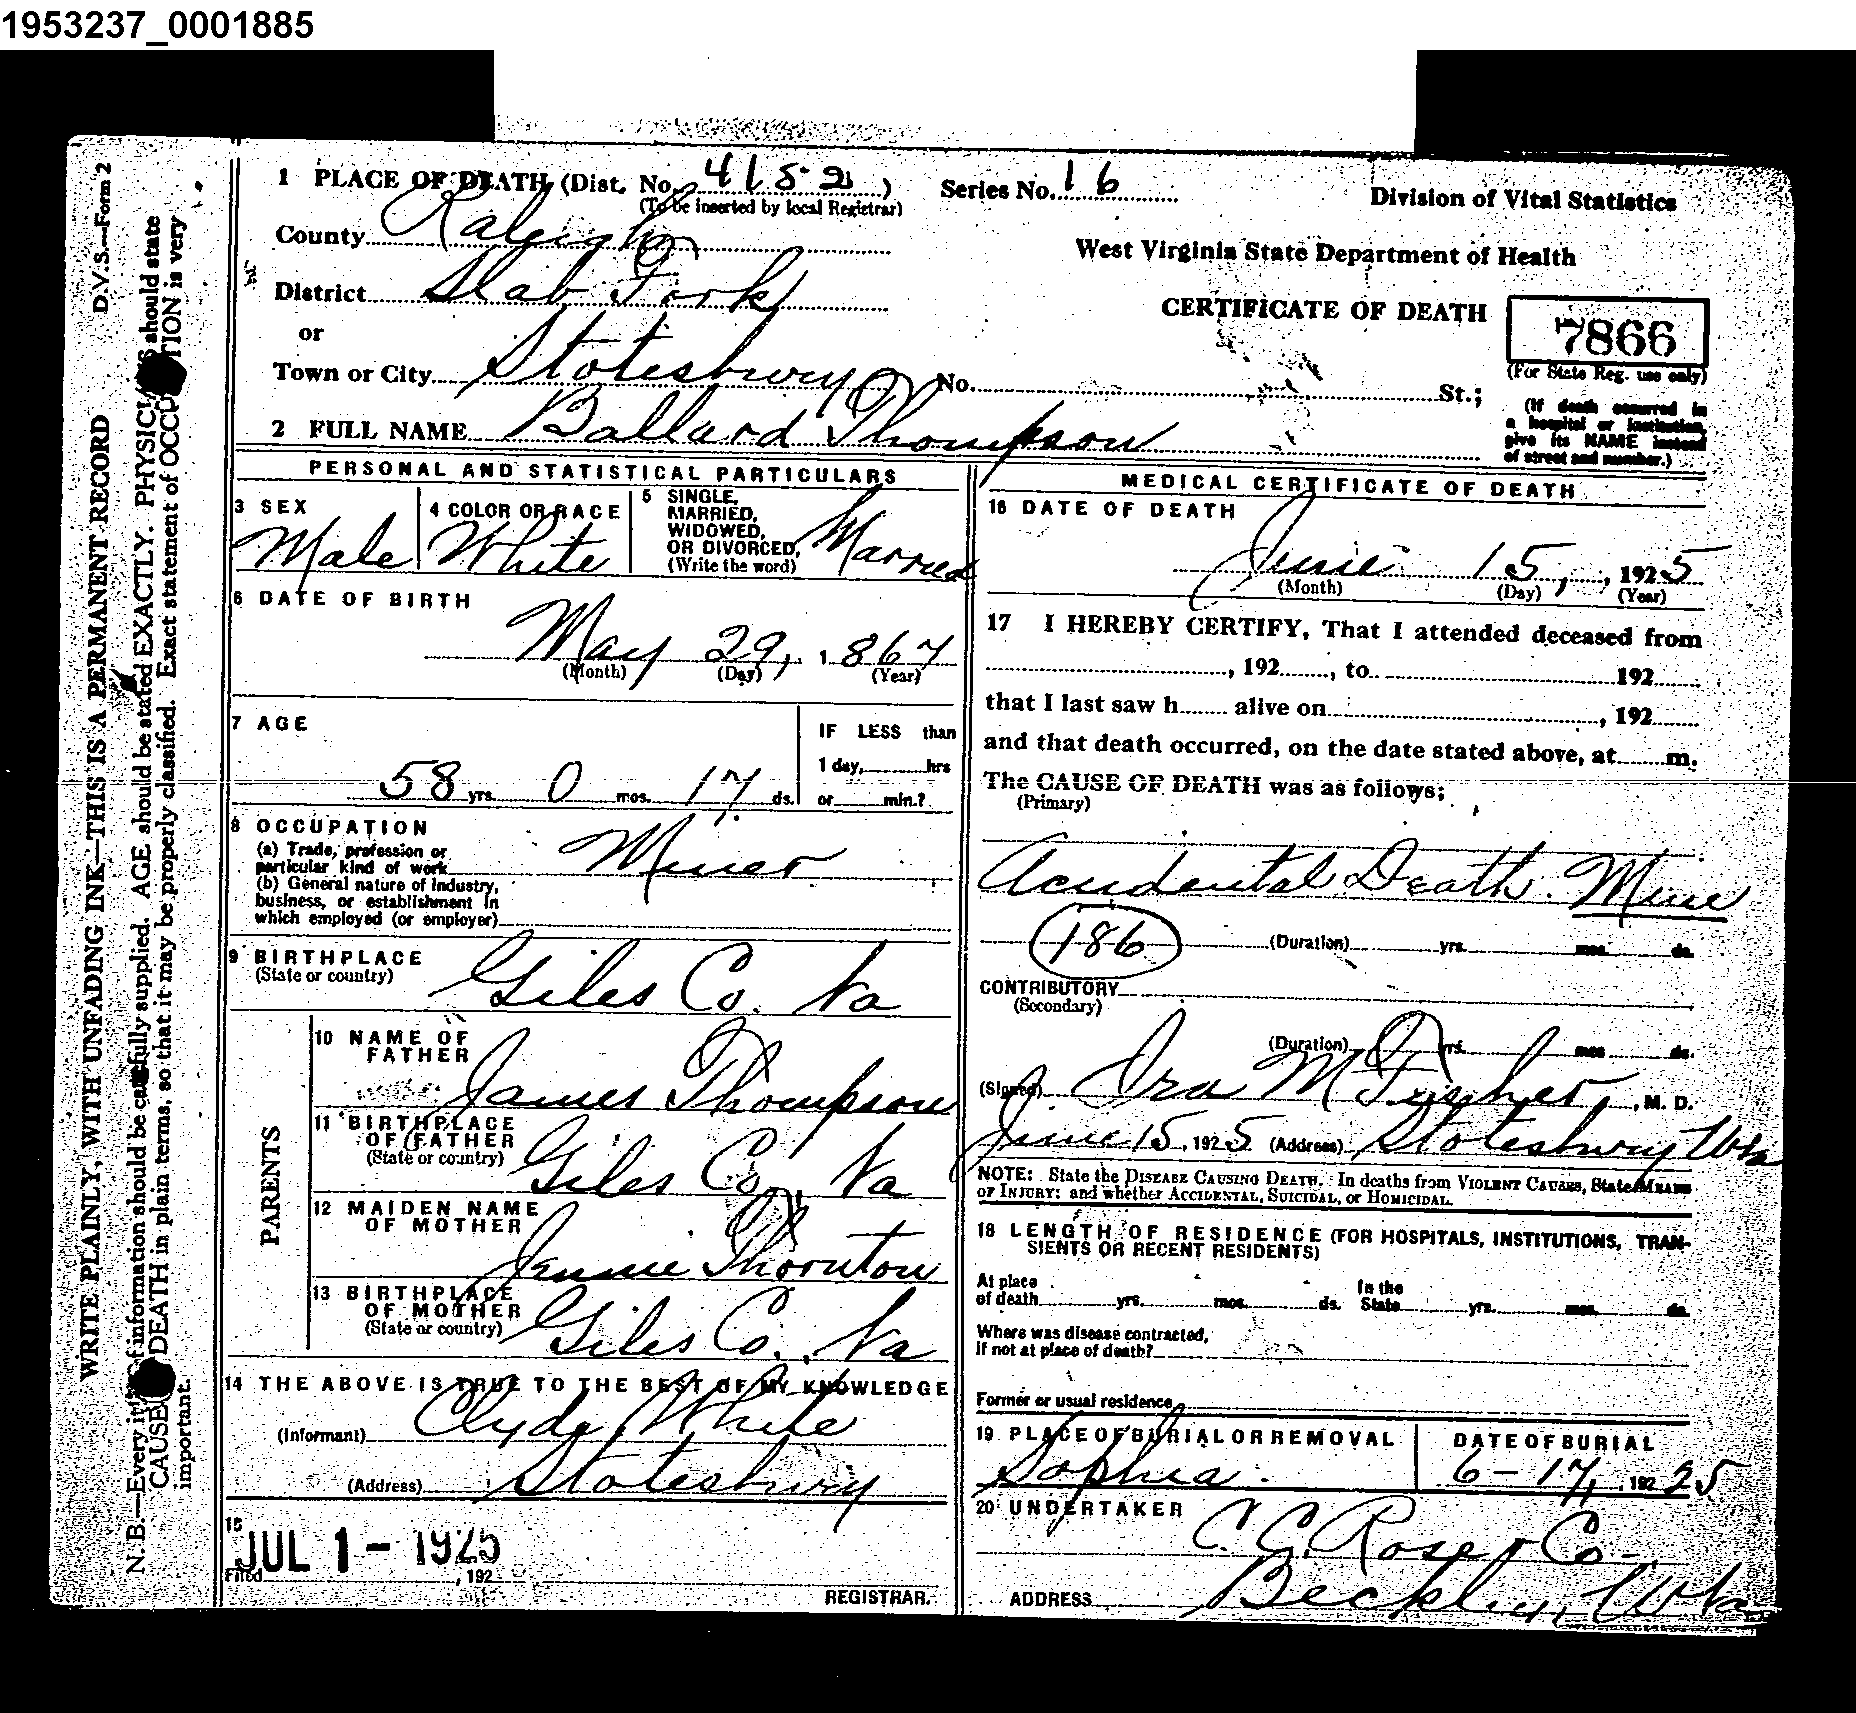 1953237_0001885
D.V.S.—Form 2
WRITE PLAINLY, WITH UNFADING INK—THIS IS A PERMANENT RECORD
N. B.—Every information should be carefully supplied. AGE should be stated EXACTLY. PHYSICIANS should state
CAUSE DEATH in plain terms, so that it may be properly classified. Exact statement of OCCUPATION is very
important.
1 PLACE OF DEATH (Dist. No. 4152)
(To be inserted by local Registrar)
Series No. 16
Division of Vital Statistics
County Raleigh
West Virginia State Department of Health
District Slab Fork
CERTIFICATE OF DEATH
7866
(For State Reg. use only)
or
Town or City Stotesbury No. St.;
(If death occurred in
a hospital or institution,
give its NAME instead
of street and number.)
2 FULL NAME Ballard Thompson
PERSONAL AND STATISTICAL PARTICULARS
3 SEX
Male
4 COLOR OR RACE
White
5 SINGLE,
MARRIED,
WIDOWED,
OR DIVORCED,
(Write the word)
Married
6 DATE OF BIRTH
May 29, 1867
(Month) (Day) (Year)
7 AGE
58 yrs. 0 mos. 17 ds.
IF LESS than
1 day, hrs
or min.?
8 OCCUPATION
(a) Trade, profession or
particular kind of work
Miner
(b) General nature of industry,
business, or establishment in
which employed (or employer)
9 BIRTHPLACE
(State or country)
Giles Co. Va
PARENTS
10 NAME OF
FATHER
James Thompson
11 BIRTHPLACE
OF FATHER
(State or country)
Giles Co., Va
12 MAIDEN NAME
OF MOTHER
Jennie Thornton
13 BIRTHPLACE
OF MOTHER
(State or country)
Giles Co., Va
14 THE ABOVE IS TRUE TO THE BEST OF MY KNOWLEDGE
(Informant) Clyde White
(Address) Stotesbury
15
JUL 1 - 1925
Filed , 192
REGISTRAR.
MEDICAL CERTIFICATE OF DEATH
16 DATE OF DEATH
June 15, , 1925
(Month) (Day) (Year)
17 I HEREBY CERTIFY, That I attended deceased from
, 192 , to 192
that I last saw h alive on , 192
and that death occurred, on the date stated above, at m.
The CAUSE OF DEATH was as follows;
(Primary)
Accidental Death. Mine
186 (Duration) yrs. mos. ds.
CONTRIBUTORY
(Secondary)
(Duration) yrs. mos. ds.
(Signed) Ira M Fischer, , M. D.
June 15, 1925 (Address) Stotesbury WVa
NOTE: State the DISEASE CAUSING DEATH. In deaths from VIOLENT CAUSES, State MEANS
OF INJURY; and whether ACCIDENTAL, SUICIDAL, or HOMICIDAL.
18 LENGTH OF RESIDENCE (FOR HOSPITALS, INSTITUTIONS, TRAN-
SIENTS OR RECENT RESIDENTS)
At place
of death yrs. mos. ds.
In the
State yrs. mos. ds.
Where was disease contracted,
if not at place of death?
Former or usual residence
19 PLACE OF BURIAL OR REMOVAL
Sophia.
DATE OF BURIAL
6-17, 192 25
20 UNDERTAKER
C. C. Rose & Co.
ADDRESS Beckley, WVa